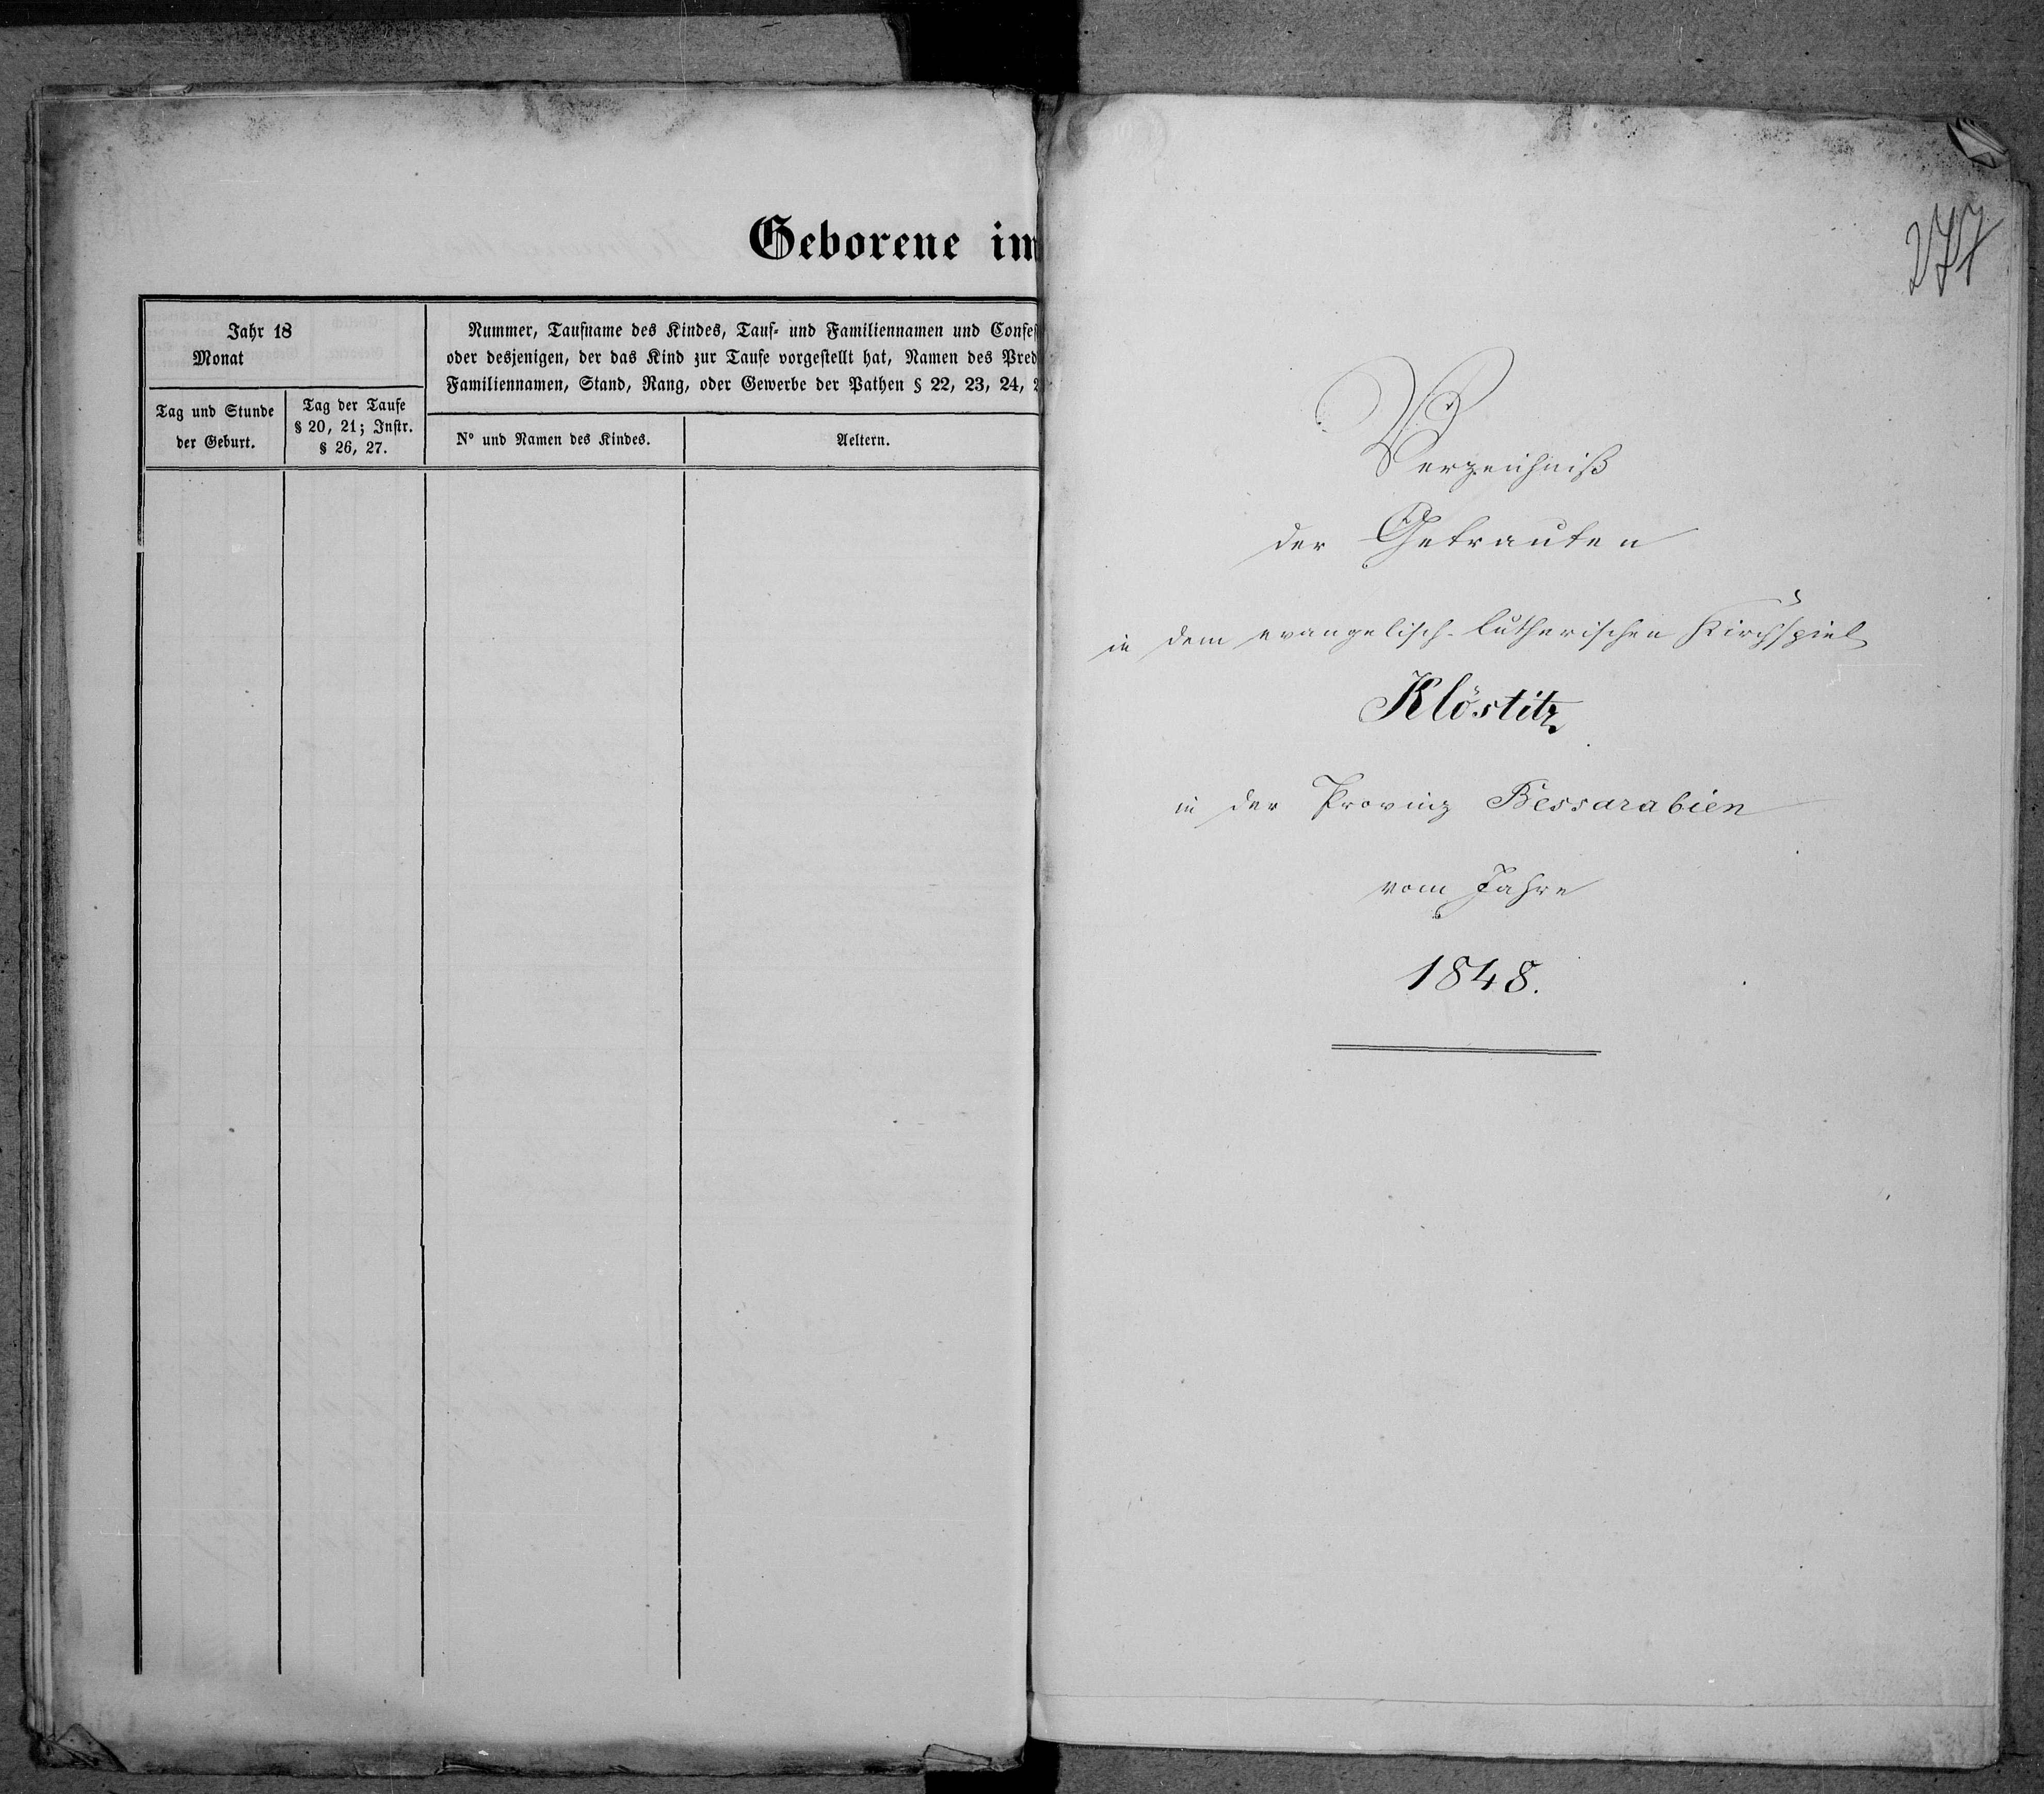 Geborene im
Jahr 18
Monat
Nummer, Taufname des Kindes, Tauf- und Familiennamen und Confes
oder desjenigen, der das Kind zur Taufe vorgestellt hat, Namen des Pred
Familiennamen, Stand, Rang, oder Gewerbe der Pathen § 22, 23, 24,
Tag und Stunde
der Geburt.
Tag der Taufe
§ 20, 21; Instr.
§ 26, 27.
N° und Namen des Kindes.
Aeltern.
277
Verzeichniß
der Getrauten
in dem evangelisch-lutherischen Kirchspiel
Klöstitz
in der Provinz Bessarabien
vom Jahre
1848.